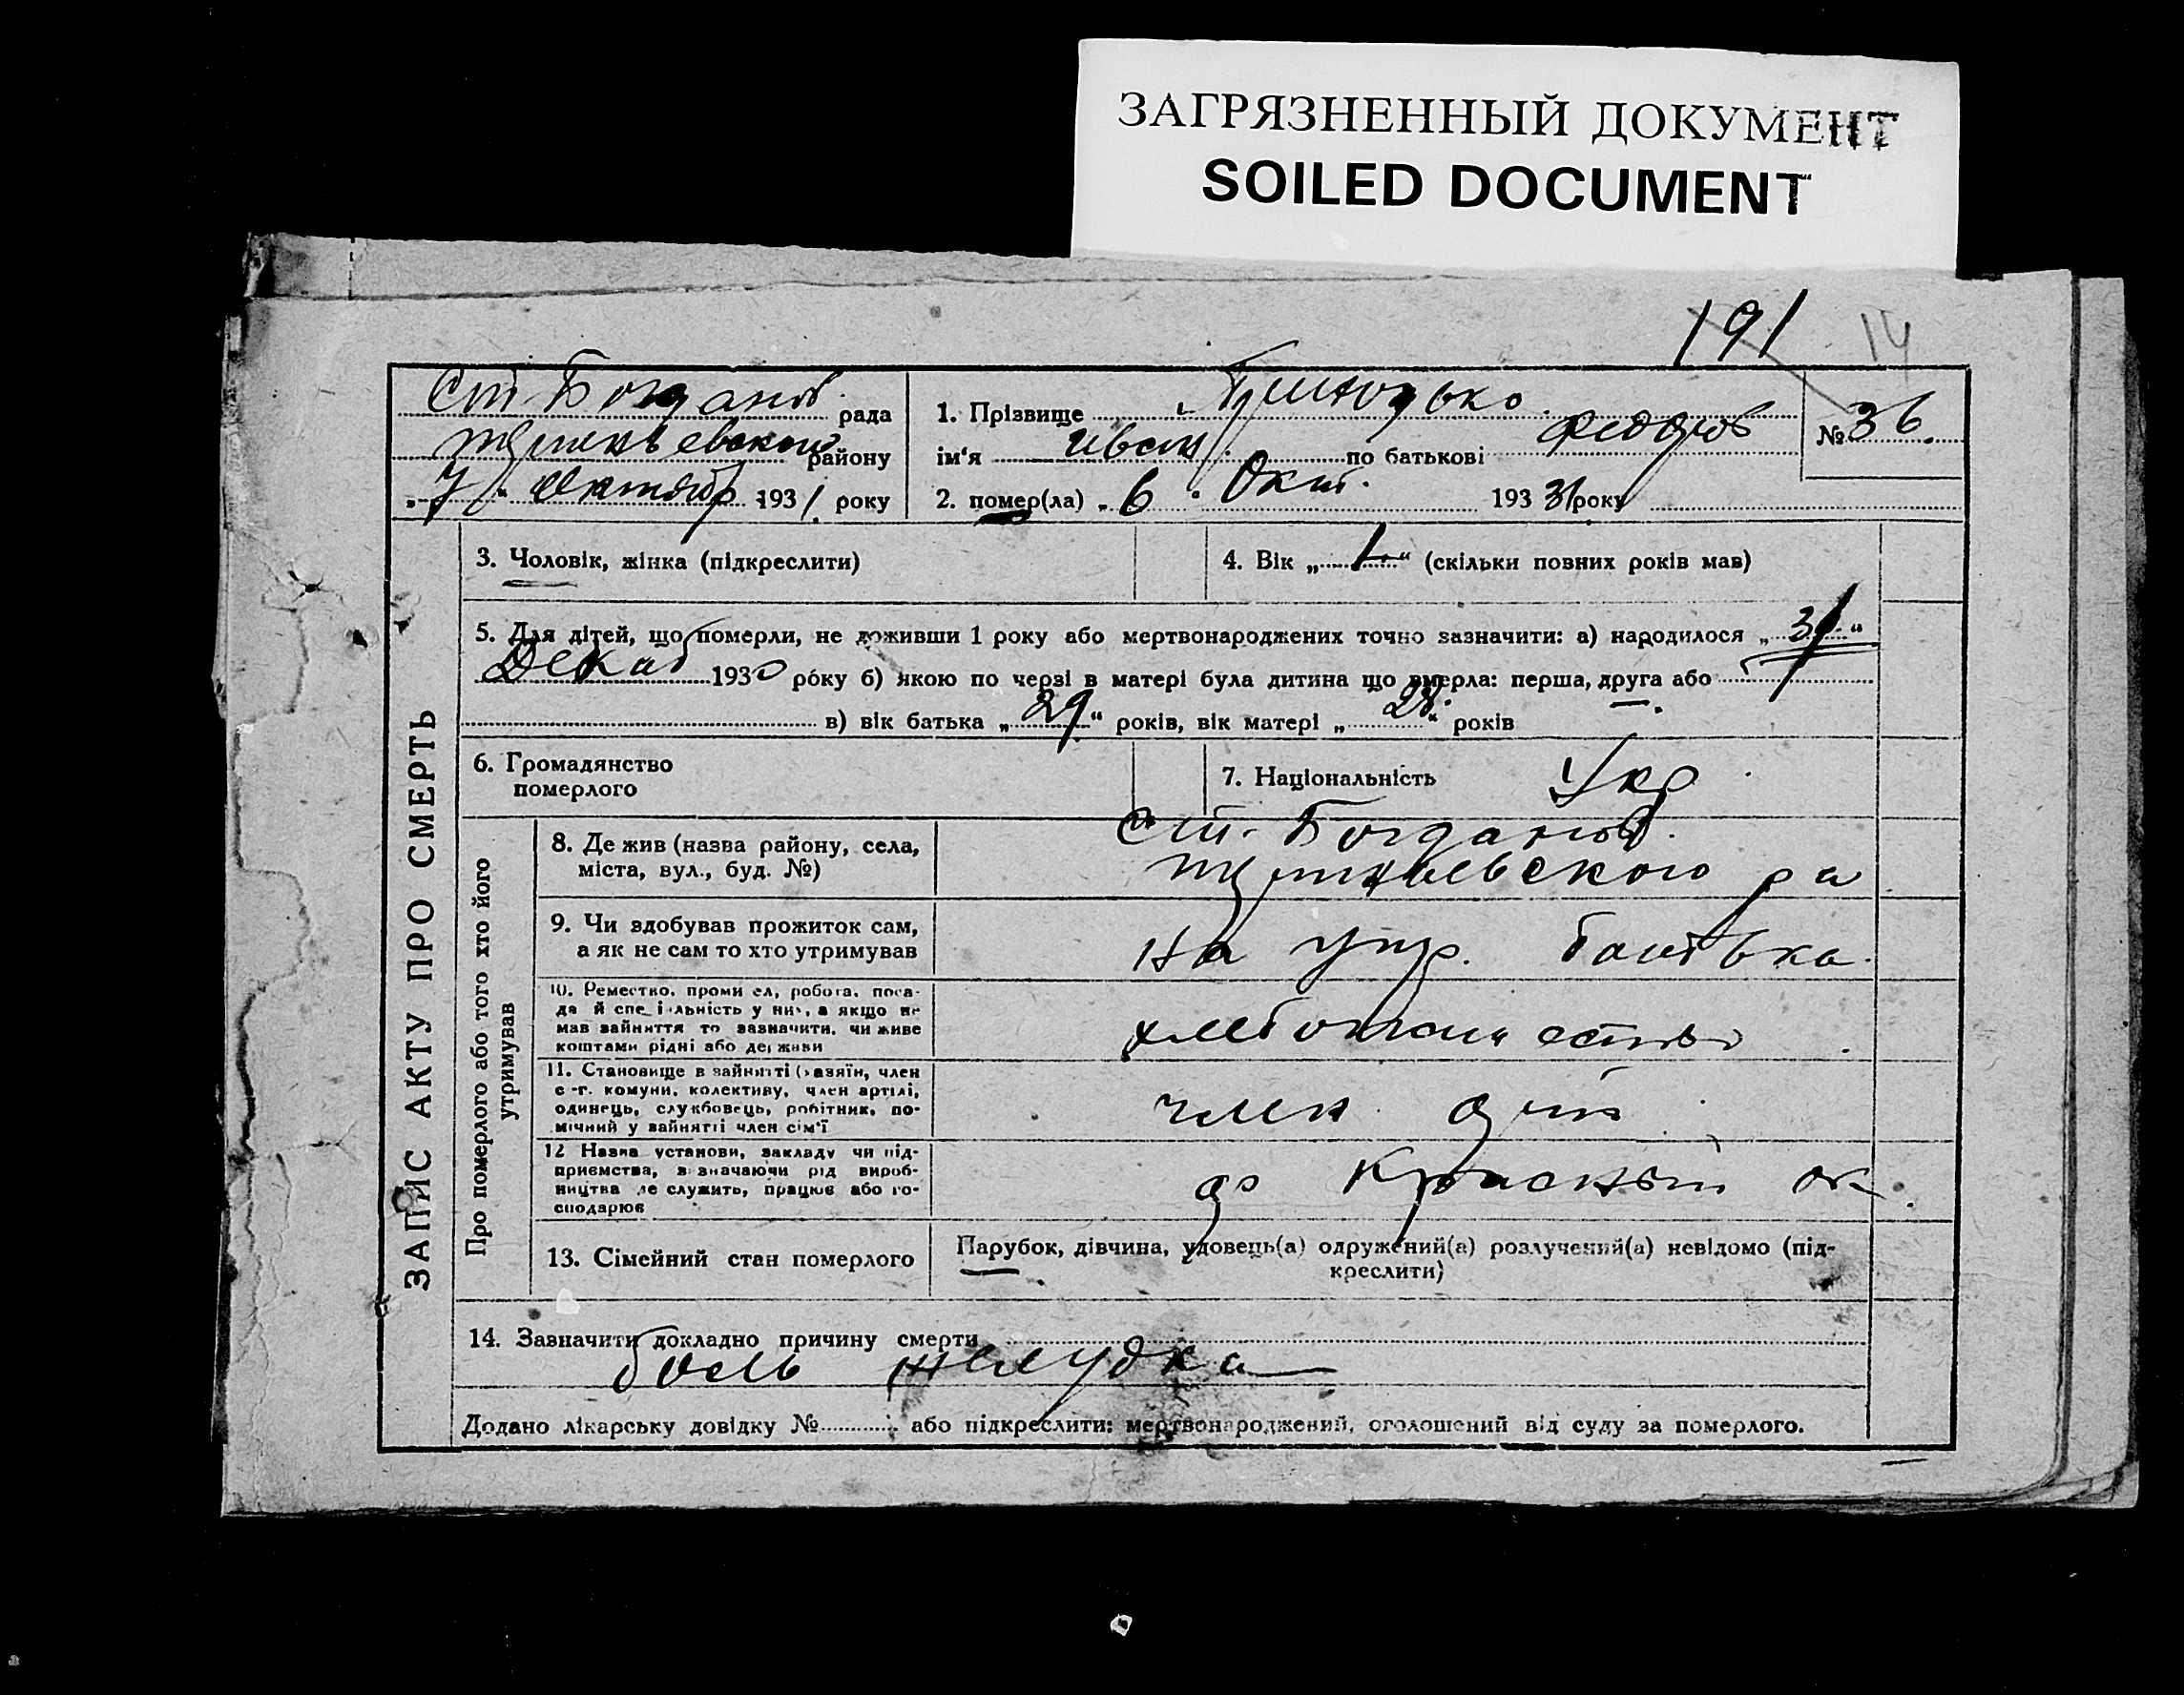 ЗАГРЯЗНЕННЫЙ ДОКУМЕНТ
SOILED DOCUMENT
191 14
Ст-Богданов. рада
району
„7“ Октябр 1931. року
1. Прізвище
ім'я Иван по батькові Федоров
2. помер(ла) „6“ Окт. 193 31 року
№ 36.
ЗАПИС АКТУ ПРО СМЕРТЬ
3. Чоловік, жінка (підкреслити)
4. Вік „1“ (скільки повних років мав)
5. Для дітей, що померли, не доживши 1 року або мертвонароджених точно зазначити: а) народилося „31“
Декаб 1930 року б) якою по черзі в матері була дитина що вмерла: перша, друга або
в) вік батька „29“ років, вік матері „28“ років
6. Громадянство
померлого
7. Національність Укр
Про померлого або того хто його
утримував
8. Де жив (назва району, села,
міста, вул., буд. №)
Ст. Богданов.
ра
9. Чи здобував прожиток сам,
а як не сам то хто утримував
На утр. батька.
10. Ремество, промисел, робота, поса-
да й спеціяльність у них, а якщо не
мав зайняття то зазначити, чи живе
коштами рідні або держави
11. Становище в зайнятті (хазяїн, член
с-г. комуни, колективу, член артілі,
одинець, службовець, робітник, по-
мічний у зайнятті член сім'ї
член
12 Назва установи, закладу чи під-
приємства, зазначаючи рід вироб-
ництва де служить, працює або го-
сподарює
Красный
13. Сімейний стан померлого
Парубок, дівчина, удовець(а) одружений(а) розлучений(а) невідомо (під-
креслити)
14. Зазначити докладно причину смерти
боль желудка
Додано лікарську довідку № або підкреслити: мертвонароджений, оголошений від суду за померлого.